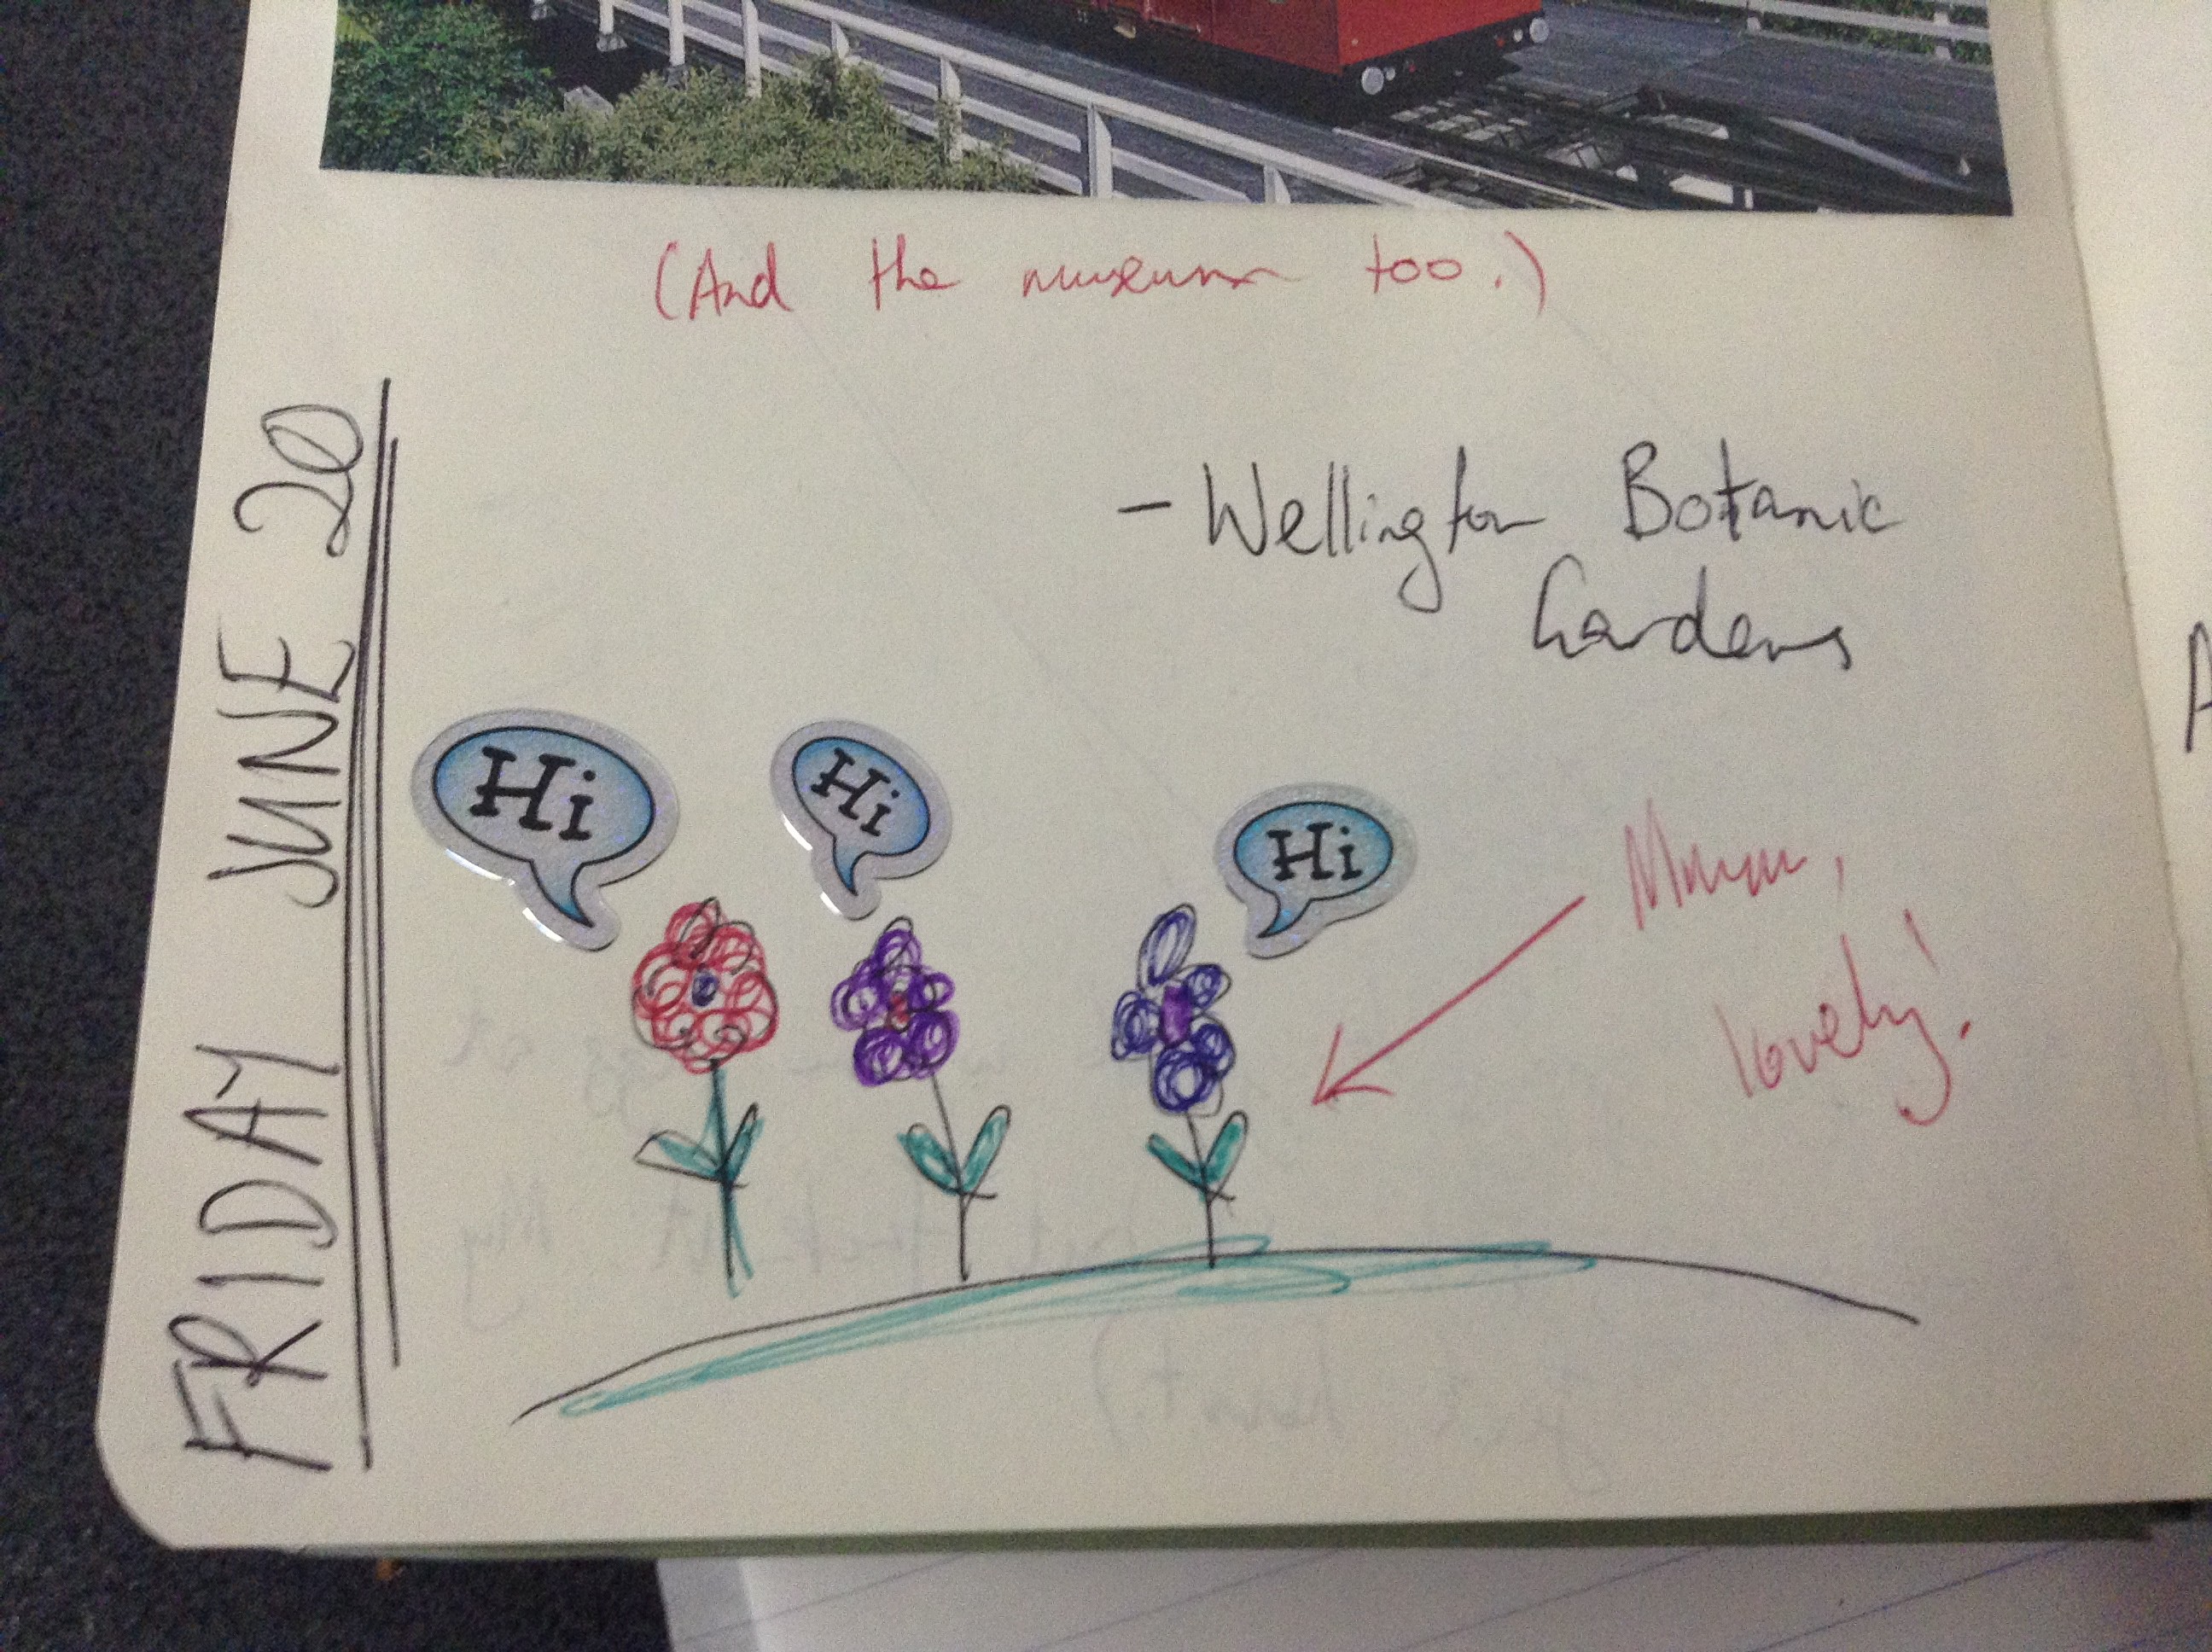 (And the museum too.)
FRIDAY JUNE 20
- Wellington Botanic
Gardens
Hi
Hi
Hi
Mmm,
lovely!